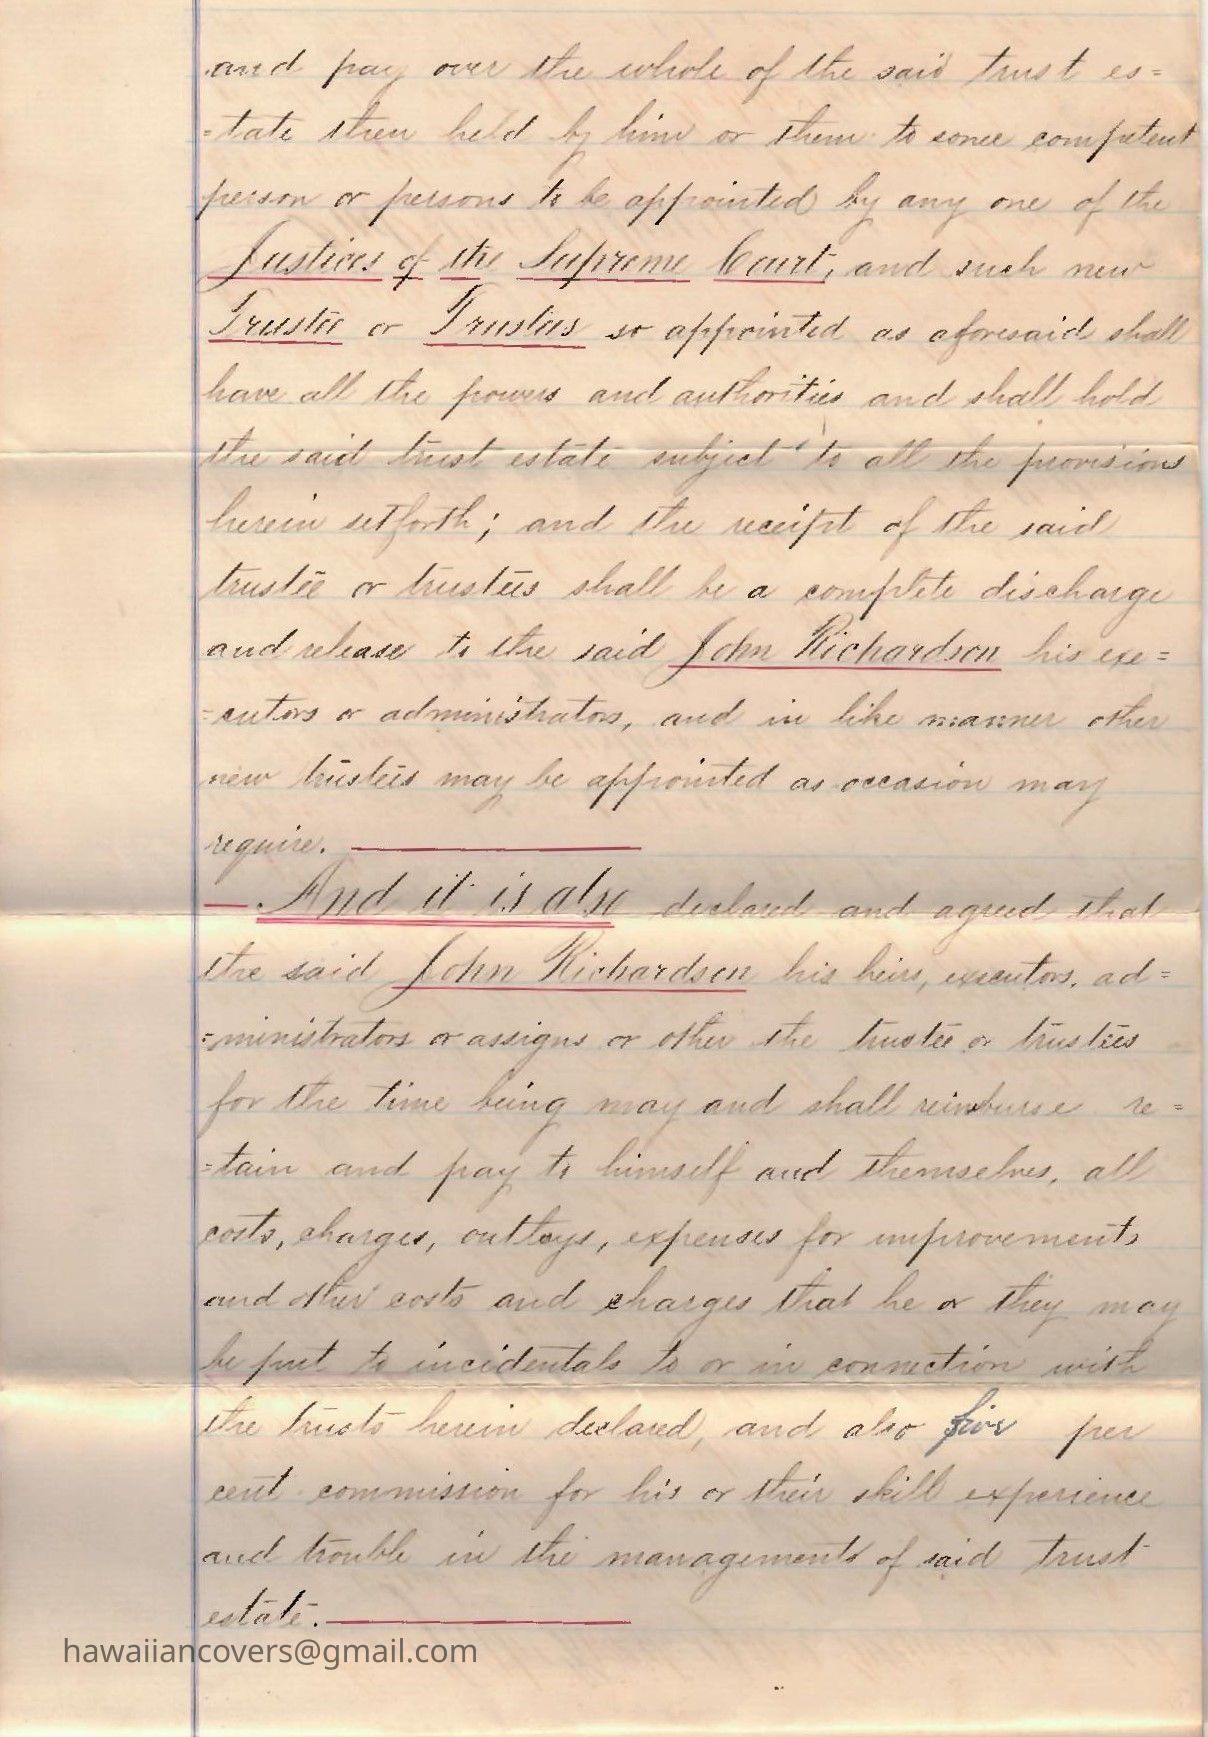 and pay over the whole of the said trust es=
=tate then held by him or them to some competent
person or persons to be appointed by any one of the
Justices of the Supreme Court, and such new
Trustee or Trustees so appointed as aforesaid shall
have all the powers and authorities and shall hold
the said trust estate subject to all the provisions
herein setforth; and the receipt of the said
trustee or trustees shall be a complete discharge
and release to the said John Richardson his exe=
=cutors or administrators, and in like manner other
new trustees may be appointed as occasion may
require.
And it is also declared and agreed that
the said John Richardson his heirs, executors, ad=
=ministrators or assigns or other the trustee or trustees
for the time being may and shall reimburse re=
=tain and pay to himself and themselves, all
costs, charges, outlays, expenses for improvements
and other costs and charges that he or they may
be put to incidentals to or in connection with
the trusts herein declared, and also five per
cent commission for his or their skill experience
and trouble in the managements of said trust
estate.
hawaiiancovers@gmail.com